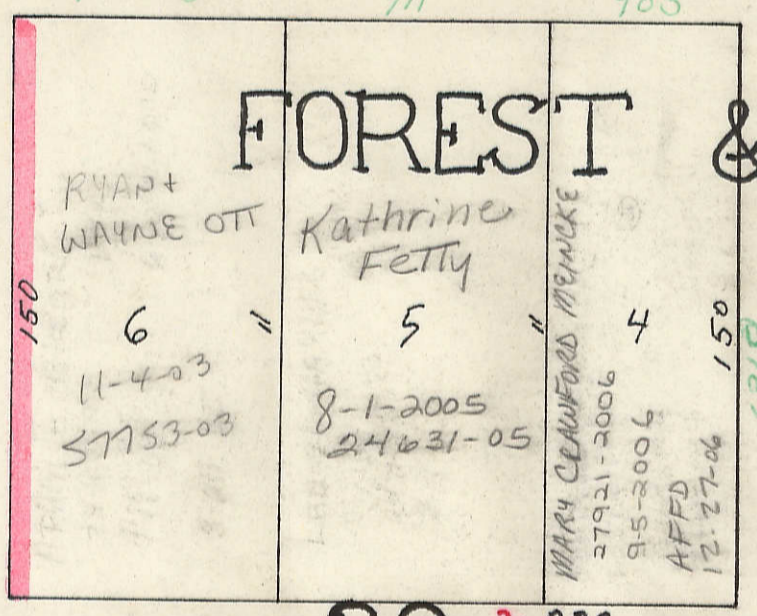 FOREST &
RYAN +
WAYNE OTT
150
6
"
11-4-03
57753-03
Kathrine
Fetty
5
"
8-1-2005
24631-05
MARY CRAWFORD MEINCKE
27921-2006
9-5-2006
AFFD
12-27-06
4
150